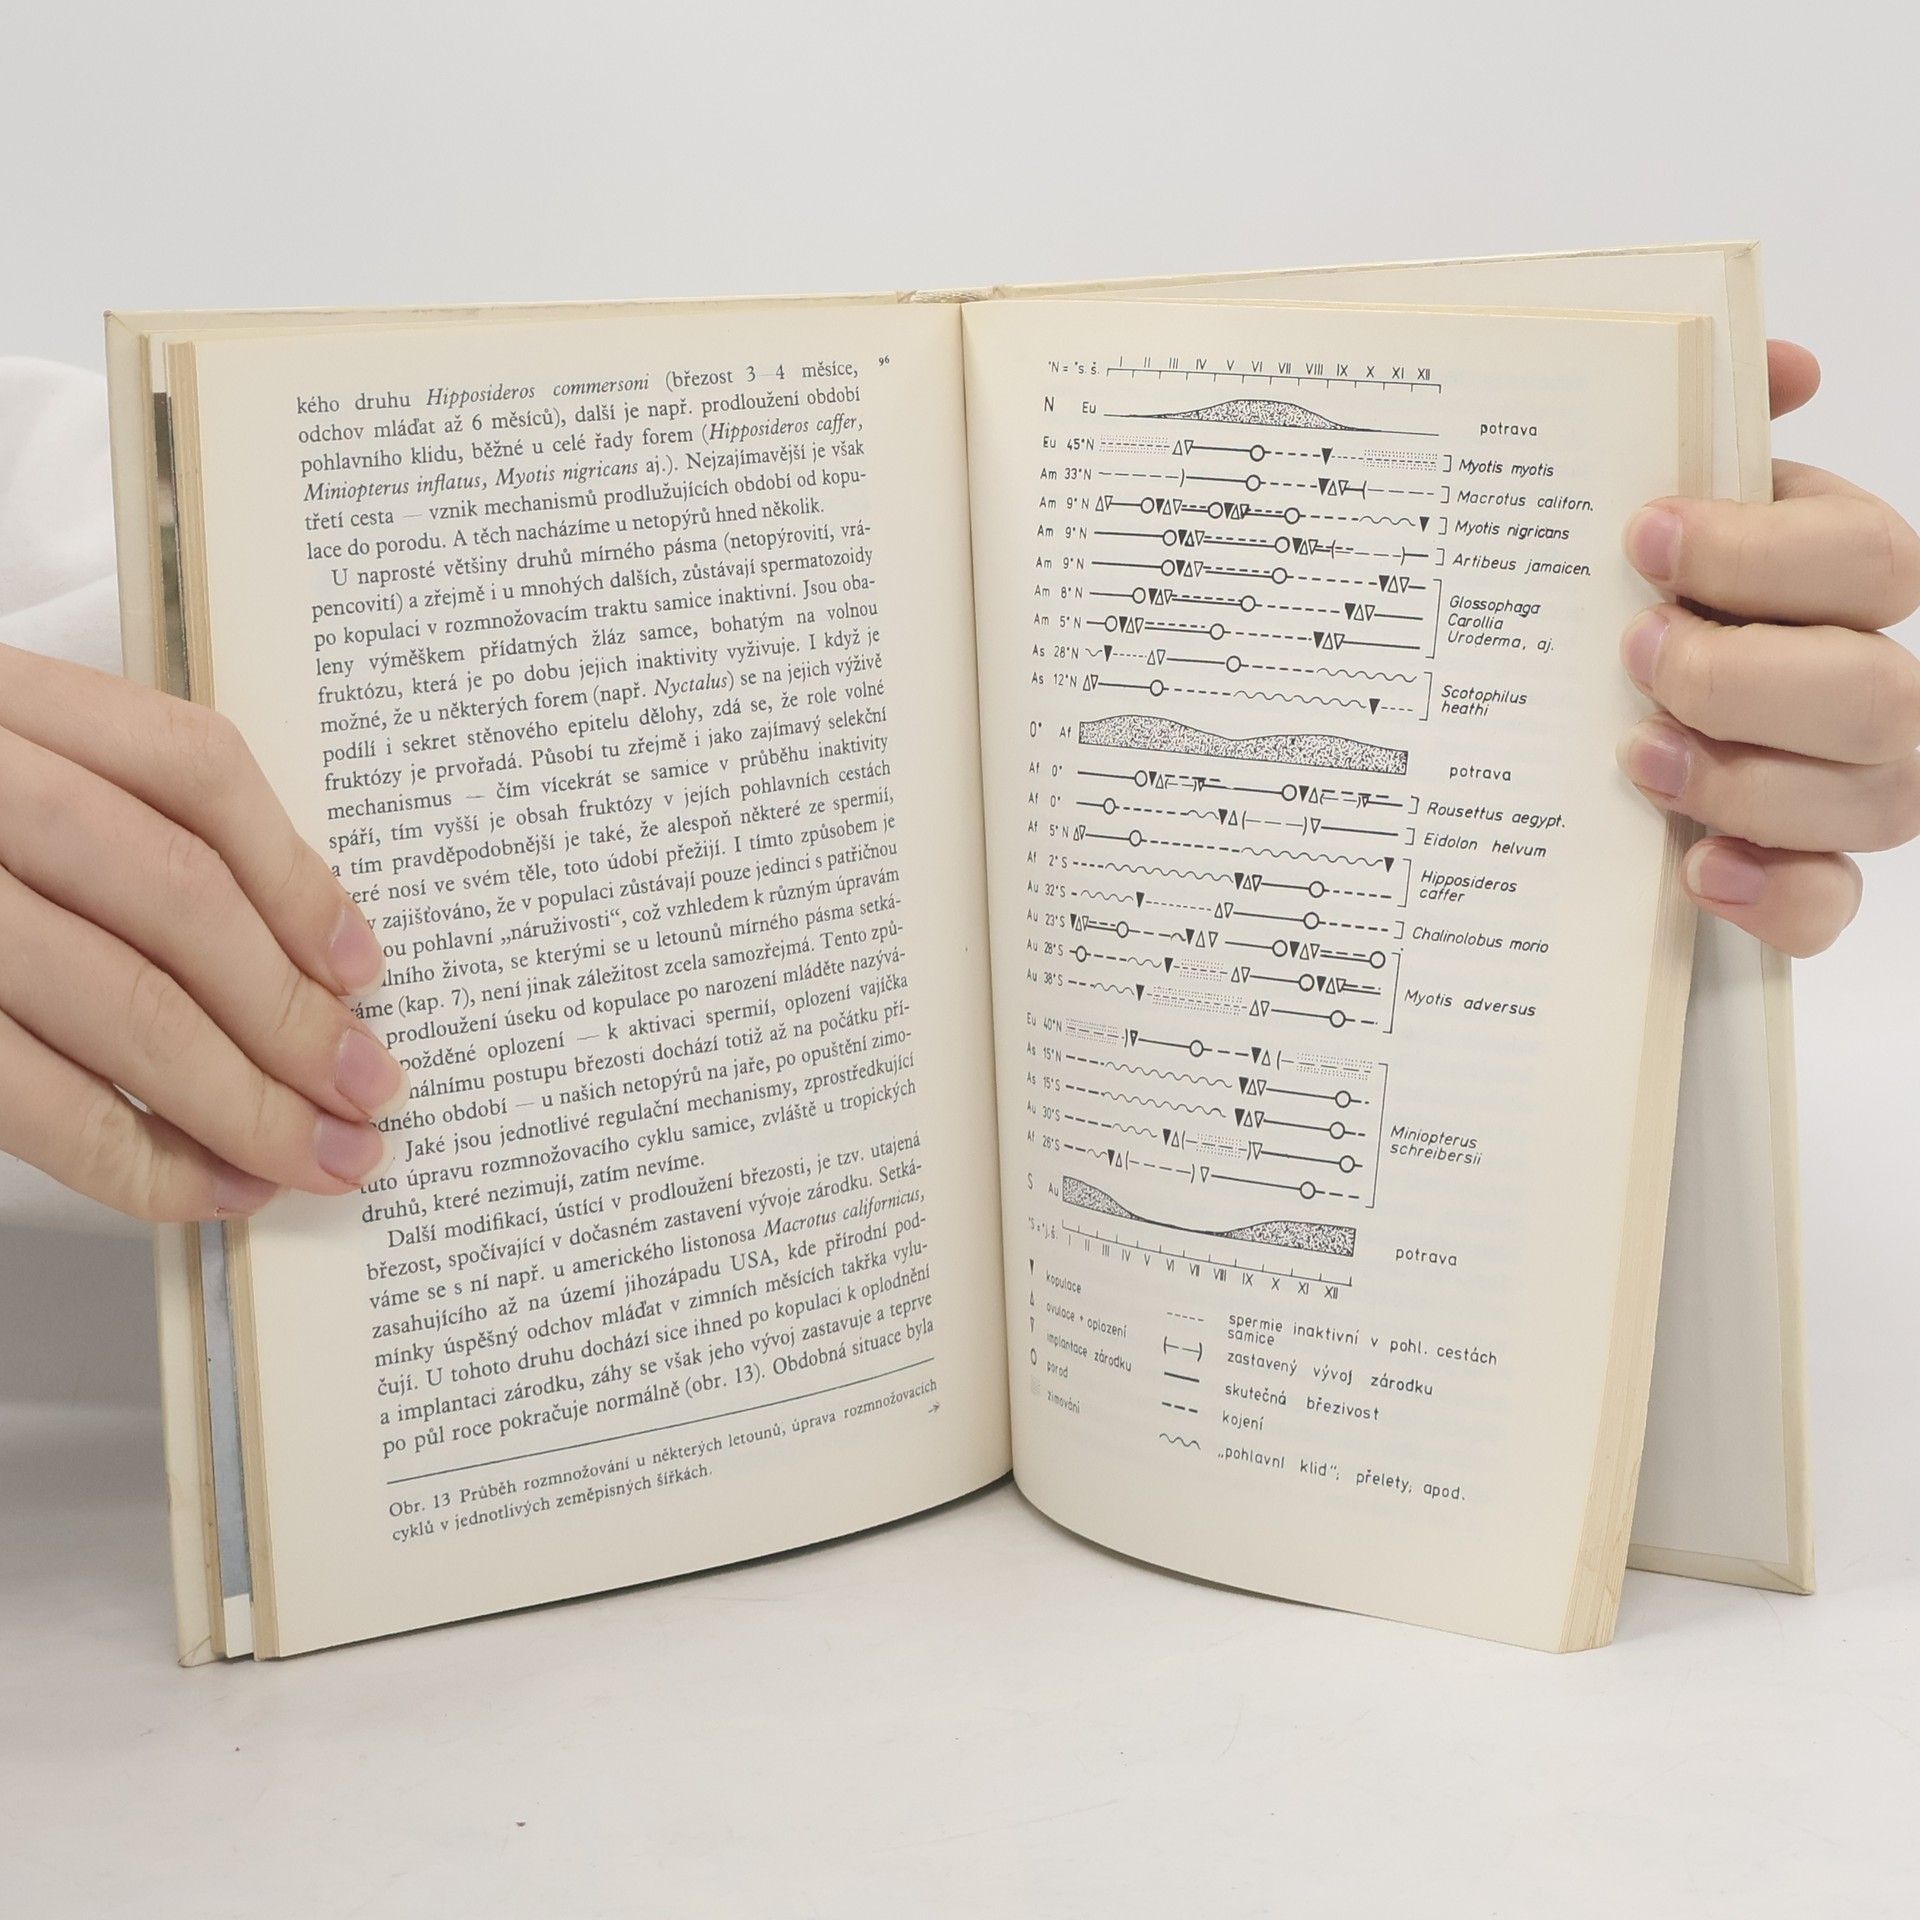 96
kého druhu Hipposideros commersoni (březost 3—4 měsíce,
odchov mláďat až 6 měsíců), další je např. prodloužení období
pohlavního klidu, běžné u celé řady forem (Hipposideros caffer,
Miniopterus inflatus, Myotis nigricans aj.). Nejzajímavější je však
třetí cesta — vznik mechanismů prodlužujících období od kopu-
lace do porodu. A těch nacházíme u netopýrů hned několik.
U naprosté většiny druhů mírného pásma (netopýrovití, vrá-
pencovití) a zřejmě i u mnohých dalších, zůstávají spermatozoidy
po kopulaci v rozmnožovacím traktu samice inaktivní. Jsou oba-
leny výměškem přídatných žláz samce, bohatým na volnou
fruktózu, která je po dobu jejich inaktivity vyživuje. I když je
možné, že u některých forem (např. Nyctalus) se na jejich výživě
podílí i sekret stěnového epitelu dělohy, zdá se, že role volné
fruktózy je prvořadá. Působí tu zřejmě i jako zajímavý selekční
mechanismus — čím vícekrát se samice v průběhu inaktivity
spáří, tím vyšší je obsah fruktózy v jejích pohlavních cestách
a tím pravděpodobnější je také, že alespoň některé ze spermií,
teré nosí ve svém těle, toto údobí přežijí. I tímto způsobem je
v zajišťováno, že v populaci zůstávají pouze jedinci s patřičnou
ou pohlavní „náruživostí“, což vzhledem k různým úpravám
lního života, se kterými se u letounů mírného pásma setká-
váme (kap. 7), není jinak záležitost zcela samozřejmá. Tento způ-
prodloužení úseku od kopulace po narození mláděte nazývá-
požděné oplození — k aktivaci spermií, oplození vajíčka
nálnímu postupu březosti dochází totiž až na počátku pří-
dného období — u našich netopýrů na jaře, po opuštění zimo-
. Jaké jsou jednotlivé regulační mechanismy, zprostředkující
tuto úpravu rozmnožovacího cyklu samice, zvláště u tropických
druhů, které nezimují, zatím nevíme.
Další modifikací, ústící v prodloužení březosti, je tzv. utajená
březost, spočívající v dočasném zastavení vývoje zárodku. Setká-
váme se s ní např. u amerického listonosa Macrotus californicus,
zasahujícího až na území jihozápadu USA, kde přírodní pod-
mínky úspěšný odchov mláďat v zimních měsících takřka vylu-
čují. U tohoto druhu dochází sice ihned po kopulaci k oplodnění
a implantaci zárodku, záhy se však jeho vývoj zastavuje a teprve
po půl roce pokračuje normálně (obr. 13). Obdobná situace byla
Obr. 13 Průběh rozmnožování u některých letounů, úprava rozmnožovacích
cyklů v jednotlivých zeměpisných šířkách.
°N = °s. š. I II III IV V VI VII VIII IX X XI XII
N Eu potrava
Eu 45°N Myotis myotis
Am 33°N Macrotus californ.
Am 9°N Myotis nigricans
Am 9°N Artibeus jamaicen.
Am 9°N
Am 8°N Glossophaga
Carollia
Am 5°N Uroderma, aj.
As 28°N Scotophilus
As 12°N heathi
0° Af potrava
Af 0° Rousettus aegypt.
Af 0° Eidolon helvum
Af 5°N Hipposideros
Af 2°S caffer
Au 32°S Chalinolobus morio
Au 23°S
Au 28°S Myotis adversus
Au 38°S
Eu 40°N
As 15°N
As 15°S Miniopterus
Au 30°S schreibersii
Af 26°S
S Au potrava
°S = °j. š. I II III IV V VI VII VIII IX X XI XII
kopulace
ovulace + oplození
implantace zárodku
porod
zimování
spermie inaktivní v pohl. cestách
samice
zastavený vývoj zárodku
skutečná březivost
kojení
„pohlavní klid“; přelety; apod.